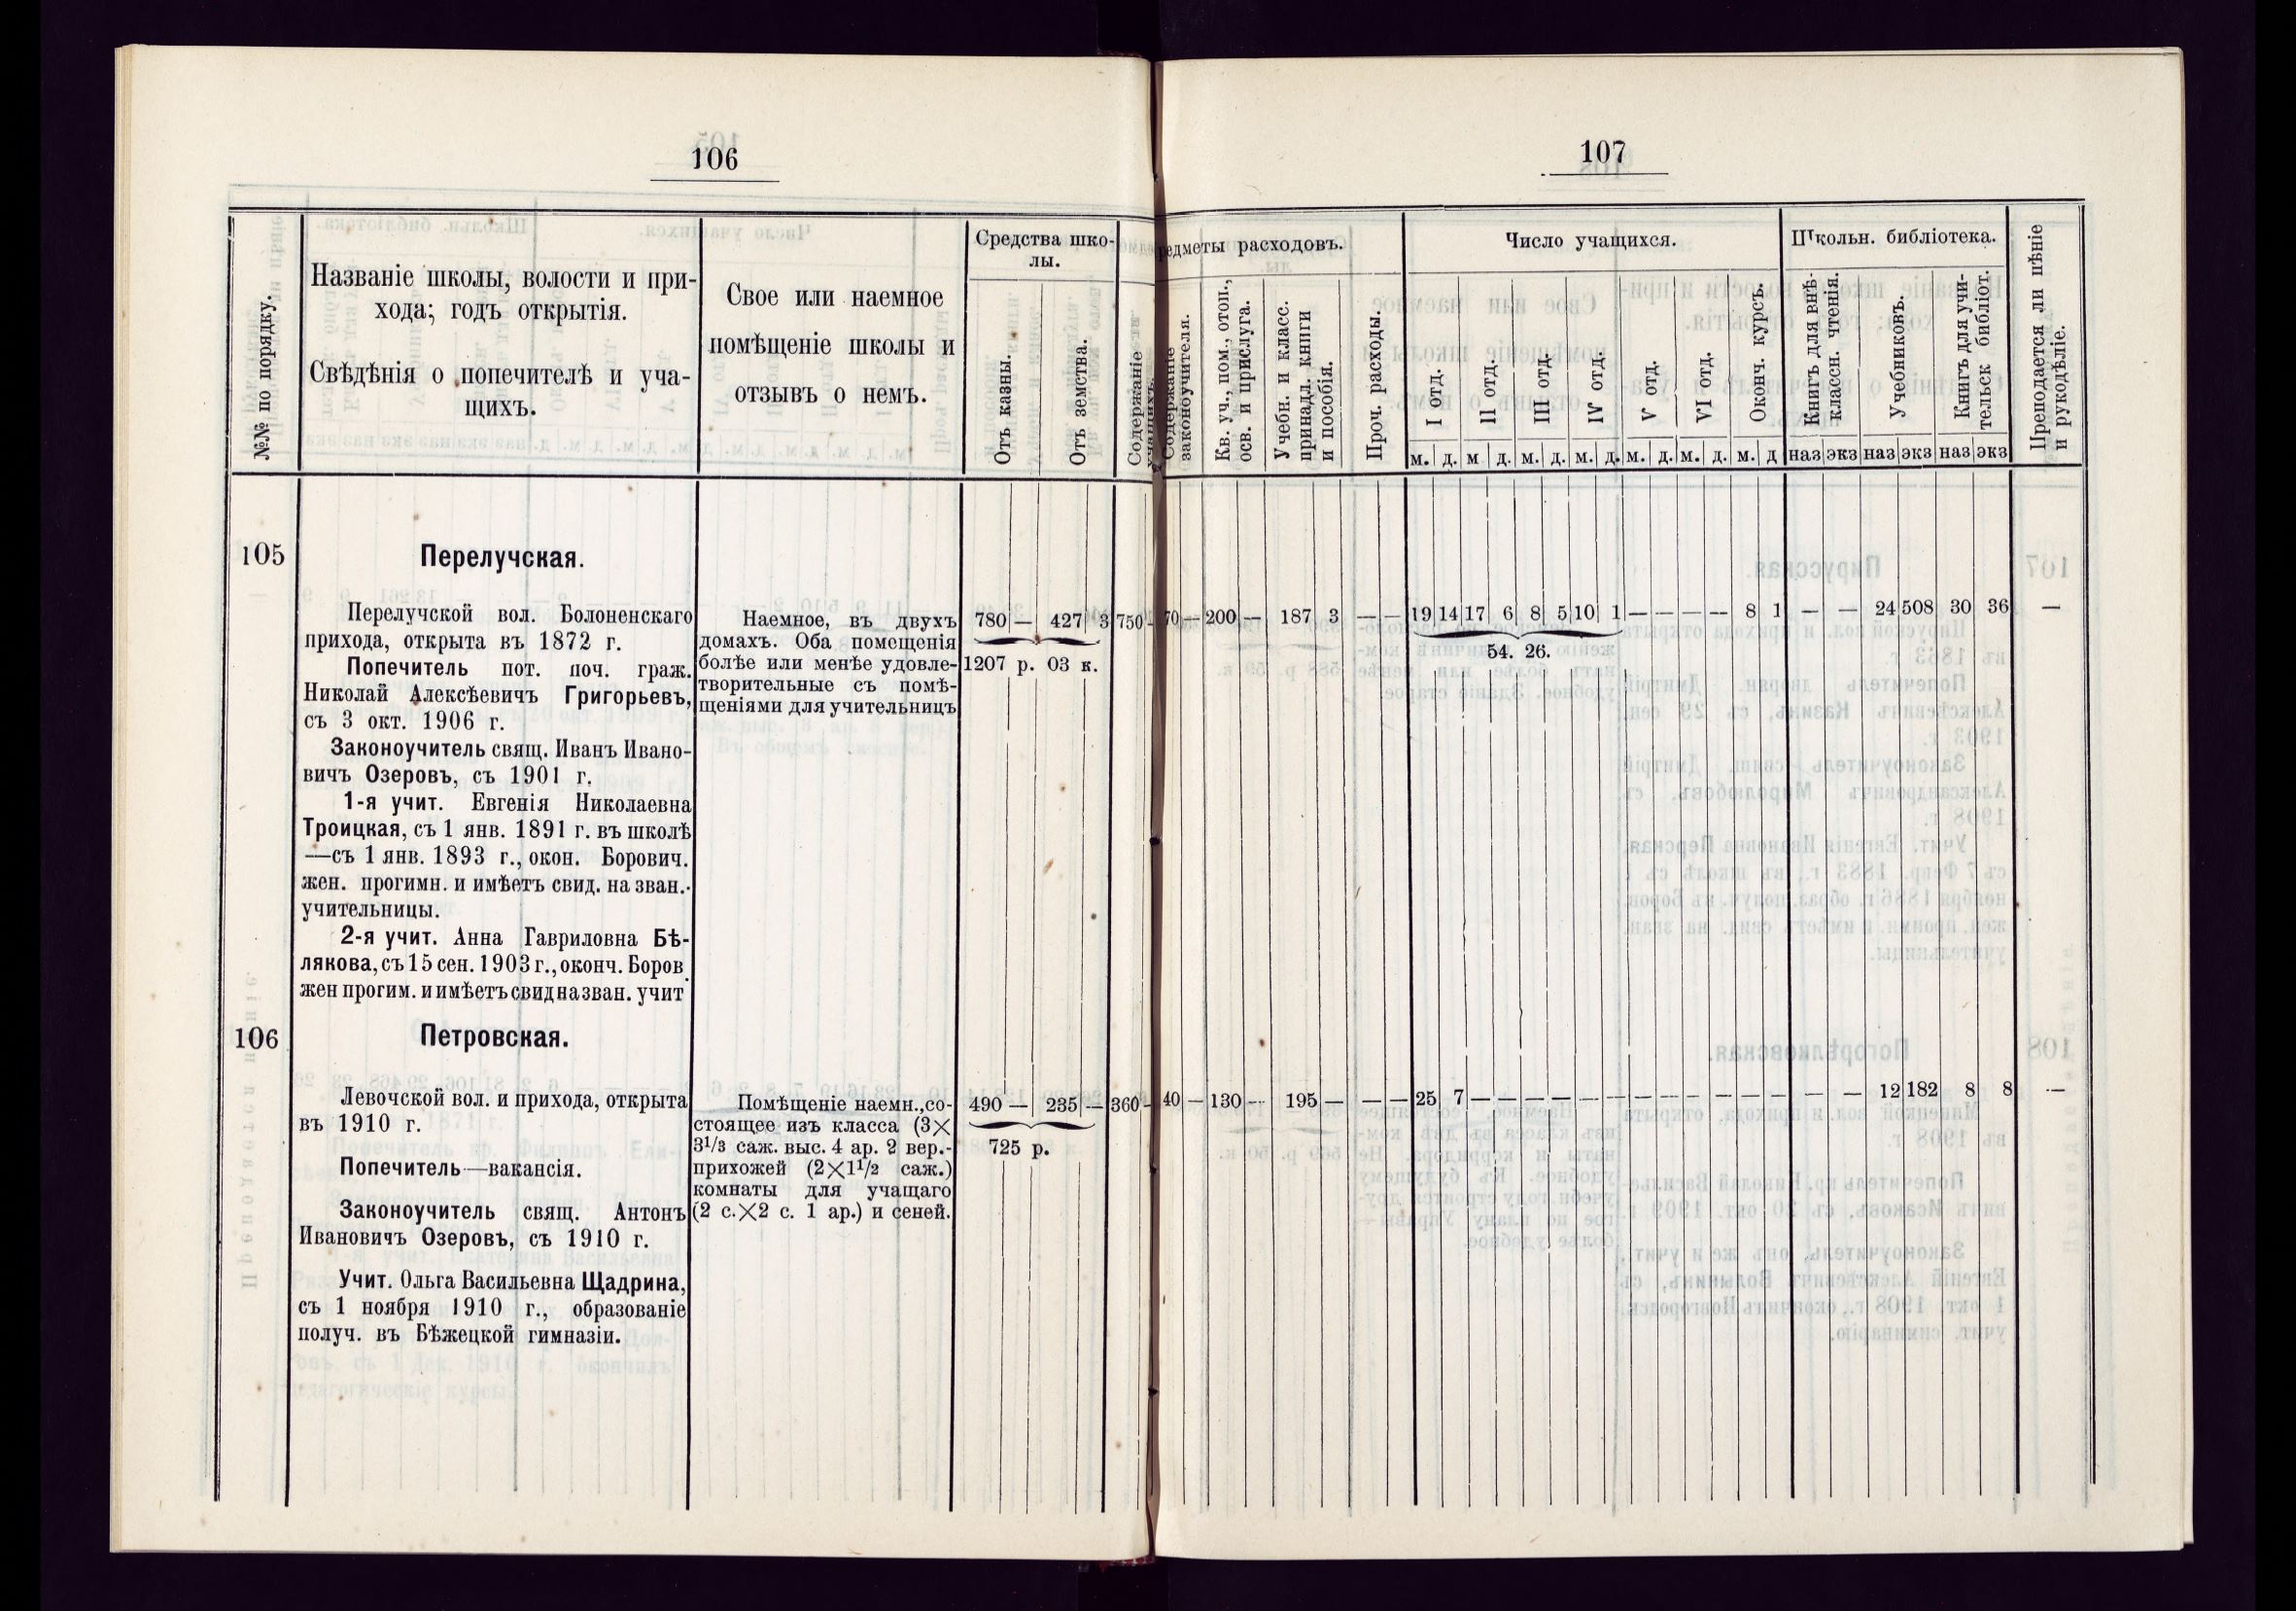 106
№№ по порядку.
Названіе школы, волости и при-
хода; годъ открытія.
Свѣдѣнія о попечителѣ и уча-
щихъ.
Свое или наемное
помѣщеніе школы и
отзывъ о немъ.
Средства шко-
лы.
Отъ казны.
Отъ земства.
Содержаніе
учащихъ.
105
Перелучская.
Перелучской вол. Болоненскаго
прихода, открыта въ 1872 г.
Попечитель пот. поч. граж.
Николай Алексѣевичъ Григорьевъ,
съ 3 окт. 1906 г.
Законоучитель свящ. Иванъ Ивано-
вичъ Озеровъ, съ 1901 г.
1-я учит. Евгенія Николаевна
Троицкая, съ 1 янв. 1891 г. въ школѣ
—съ 1 янв. 1893 г., окон. Борович.
жен. прогимн. и имѣетъ свид. на зван.
учительницы.
2-я учит. Анна Гавриловна Бѣ-
лякова, съ 15 сен. 1903 г., оконч. Боров.
жен прогим. и имѣетъ свид на зван. учит
Наемное, въ двухъ
домахъ. Оба помещенія
болѣе или менѣе удовле-
творительные съ помѣ-
щеніями для учительницъ
780 — 427 3 750 -
1207 р. 03 к.
106
Петровская.
Левочской вол. и прихода, открыта
въ 1910 г.
Попечитель—вакансія.
Законоучитель свящ. Антонъ
Ивановичъ Озеровъ, съ 1910 г.
Учит. Ольга Васильевна Щадрина,
съ 1 ноября 1910 г., образованіе
получ. въ Бѣжецкой гимназіи.
Помѣщеніе наемн., со-
стоящее изъ класса (3×
3¹/₃ саж. выс. 4 ар. 2 вер.-
прихожей (2×1¹/₂ саж.)
комнаты для учащаго
(2 с.×2 с. 1 ар.) и сеней.
490 — 235 — 360 -
725 р.
107
редметы расходовъ.
Содержаніе
законоучителя.
Кв. уч., пом., отоп.,
осв. и прислуга.
Учебн. и класс.
принадл. книги
и пособія.
Проч. расходы.
Число учащихся.
I отд.
II отд.
III отд.
IV отд.
V отд.
VI отд.
Оконч. курсъ.
м. д. м д. м. д. м. д. м. д. м. д. м. д
Школьн. библіотека.
Книгъ для внѣ-
классн. чтенія.
Учебниковъ.
Книгъ для учи-
тельск библіот.
наз экз наз экз наз экз
Преподается ли пѣніе
и рукодѣліе.
70 — 200 — 187 3 — — 19 14 17 6 8 5 10 1 — — — — 8 1 — — 24 508 30 36 —
54. 26.
40 — 130 — 195 — — — 25 7 — — — — — — — — — — — — — — 12 182 8 8 —